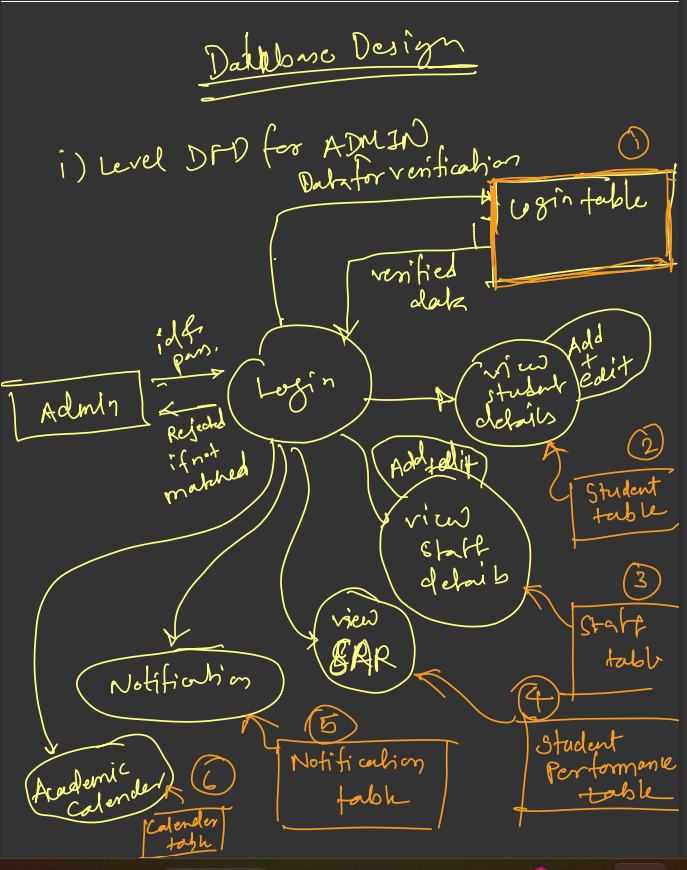 Database Design
i) Level DFD for ADMIN
①
Data for verification
Login table
verified
data
id &
pass.
Admin
Login
Rejected
if not
matched
view
student
details
Add
+
edit
②
Student
table
Add+edit
view
staff
details
③
Staff
table
view
④
Student
Performance
table
Notification
⑤
Notification
table
Academic
Calender
⑥
Calender
table